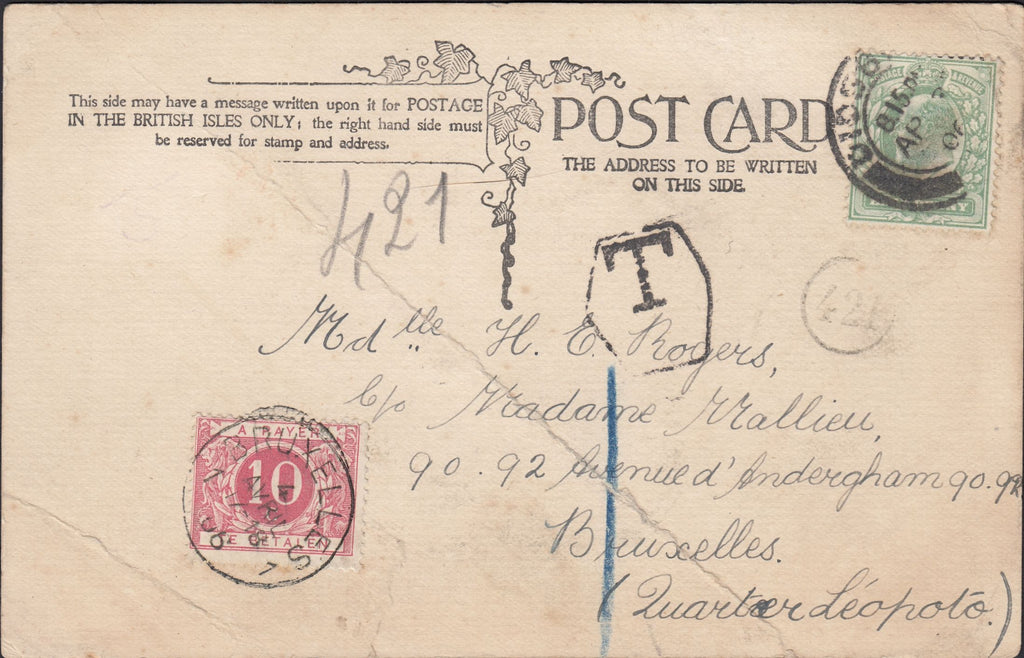 This side may have a message written upon it for POSTAGE
IN THE BRITISH ISLES ONLY; the right hand side must
be reserved for stamp and address.
POST CARD
THE ADDRESS TO BE WRITTEN
ON THIS SIDE.
8 15 PM
AP
06
421
T
424
Mdlle H. E. Rogers,
c/o Madame Mallieu,
90.92 Avenue d'Andergham 90.92
Bruxelles.
(Quartier Léopoto.)
A PAYER
10
TE BETALEN
BRUXELLES
4
AVRIL
06